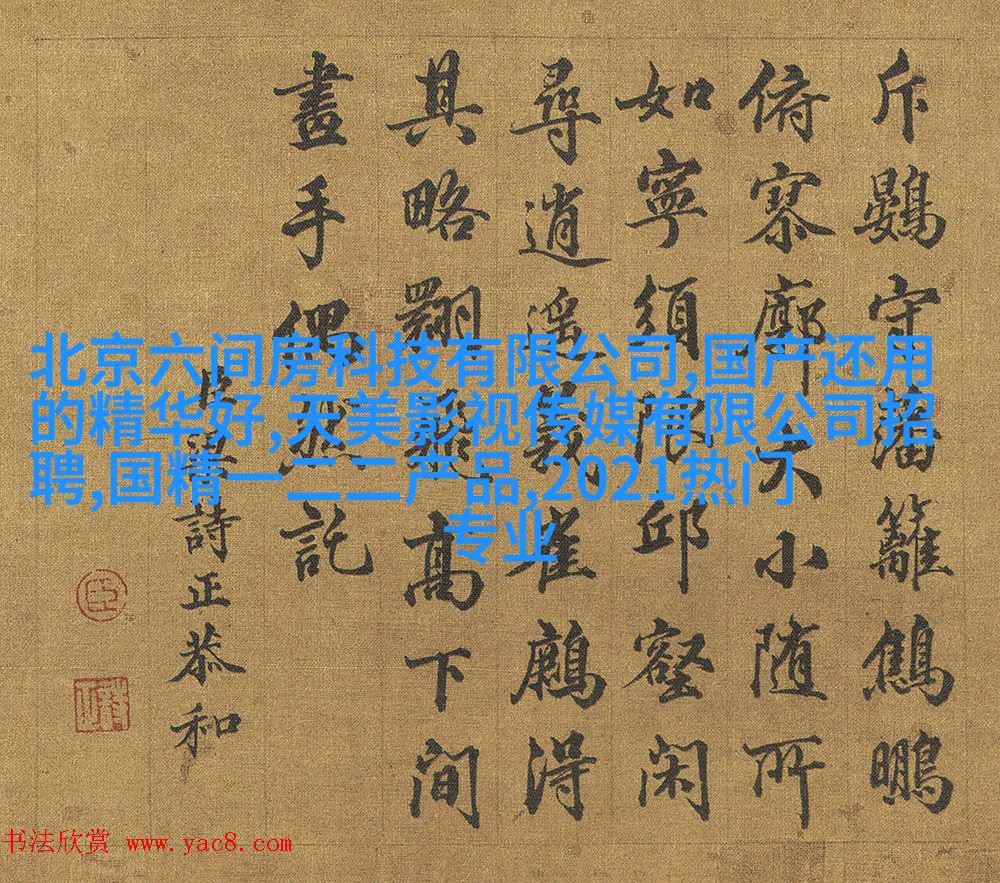 斥鷃守藩籬鷦鵬
俯寥廓大小随所
如寧須限邱壑閑
尋逍遥義雀得
其略翔集高下間
畫手偶然託
臣梁詩正恭和
臣
北京六间房科技有限公司,国产还用
的精华好,天美影视传媒有限公司招
聘,国精一二二产品,2021热门
专业
书法欣赏 www.yac8.com